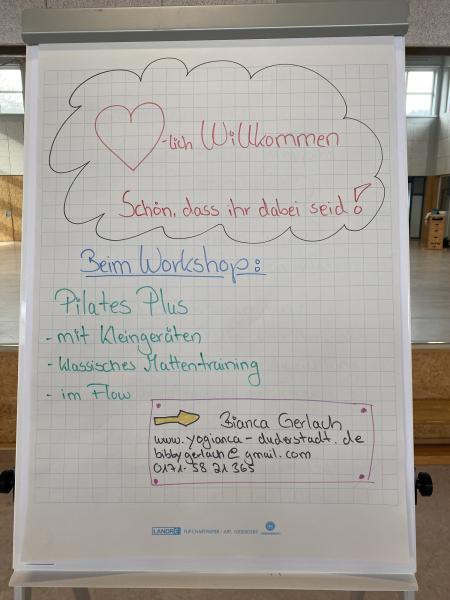 -lich Willkommen
Schön, dass ihr dabei seid!
Beim Workshop:
Pilates Plus
- mit Kleingeräten
- klassisches Mattentraining
- im Flow
Bianca Gerlach
www.yogianca-duderstadt.de
bibbygerlach@gmail.com
0171-58 21 365
LANDRÉ